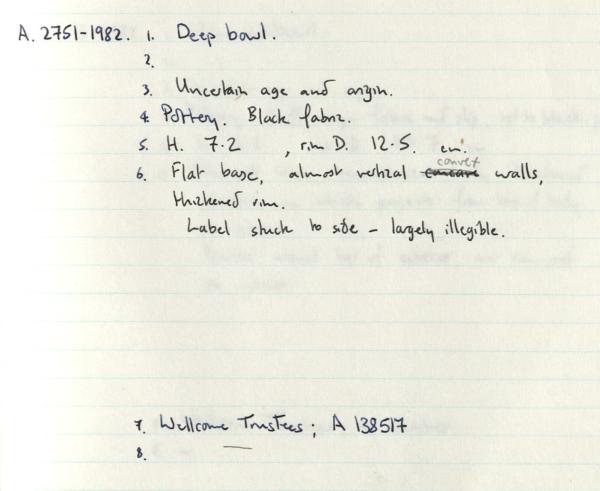 A. 2751-1982. 1. Deep bowl.
2.
3. Uncertain age and origin.
4. Pottery. Black fabric.
5. H. 7.2 , rim D. 12.5. cm.
convex
6. Flat base, almost vertical concave walls,
thickened rim.
Label stuck to side - largely illegible.
7. Wellcome Trustees; A 138517
8.